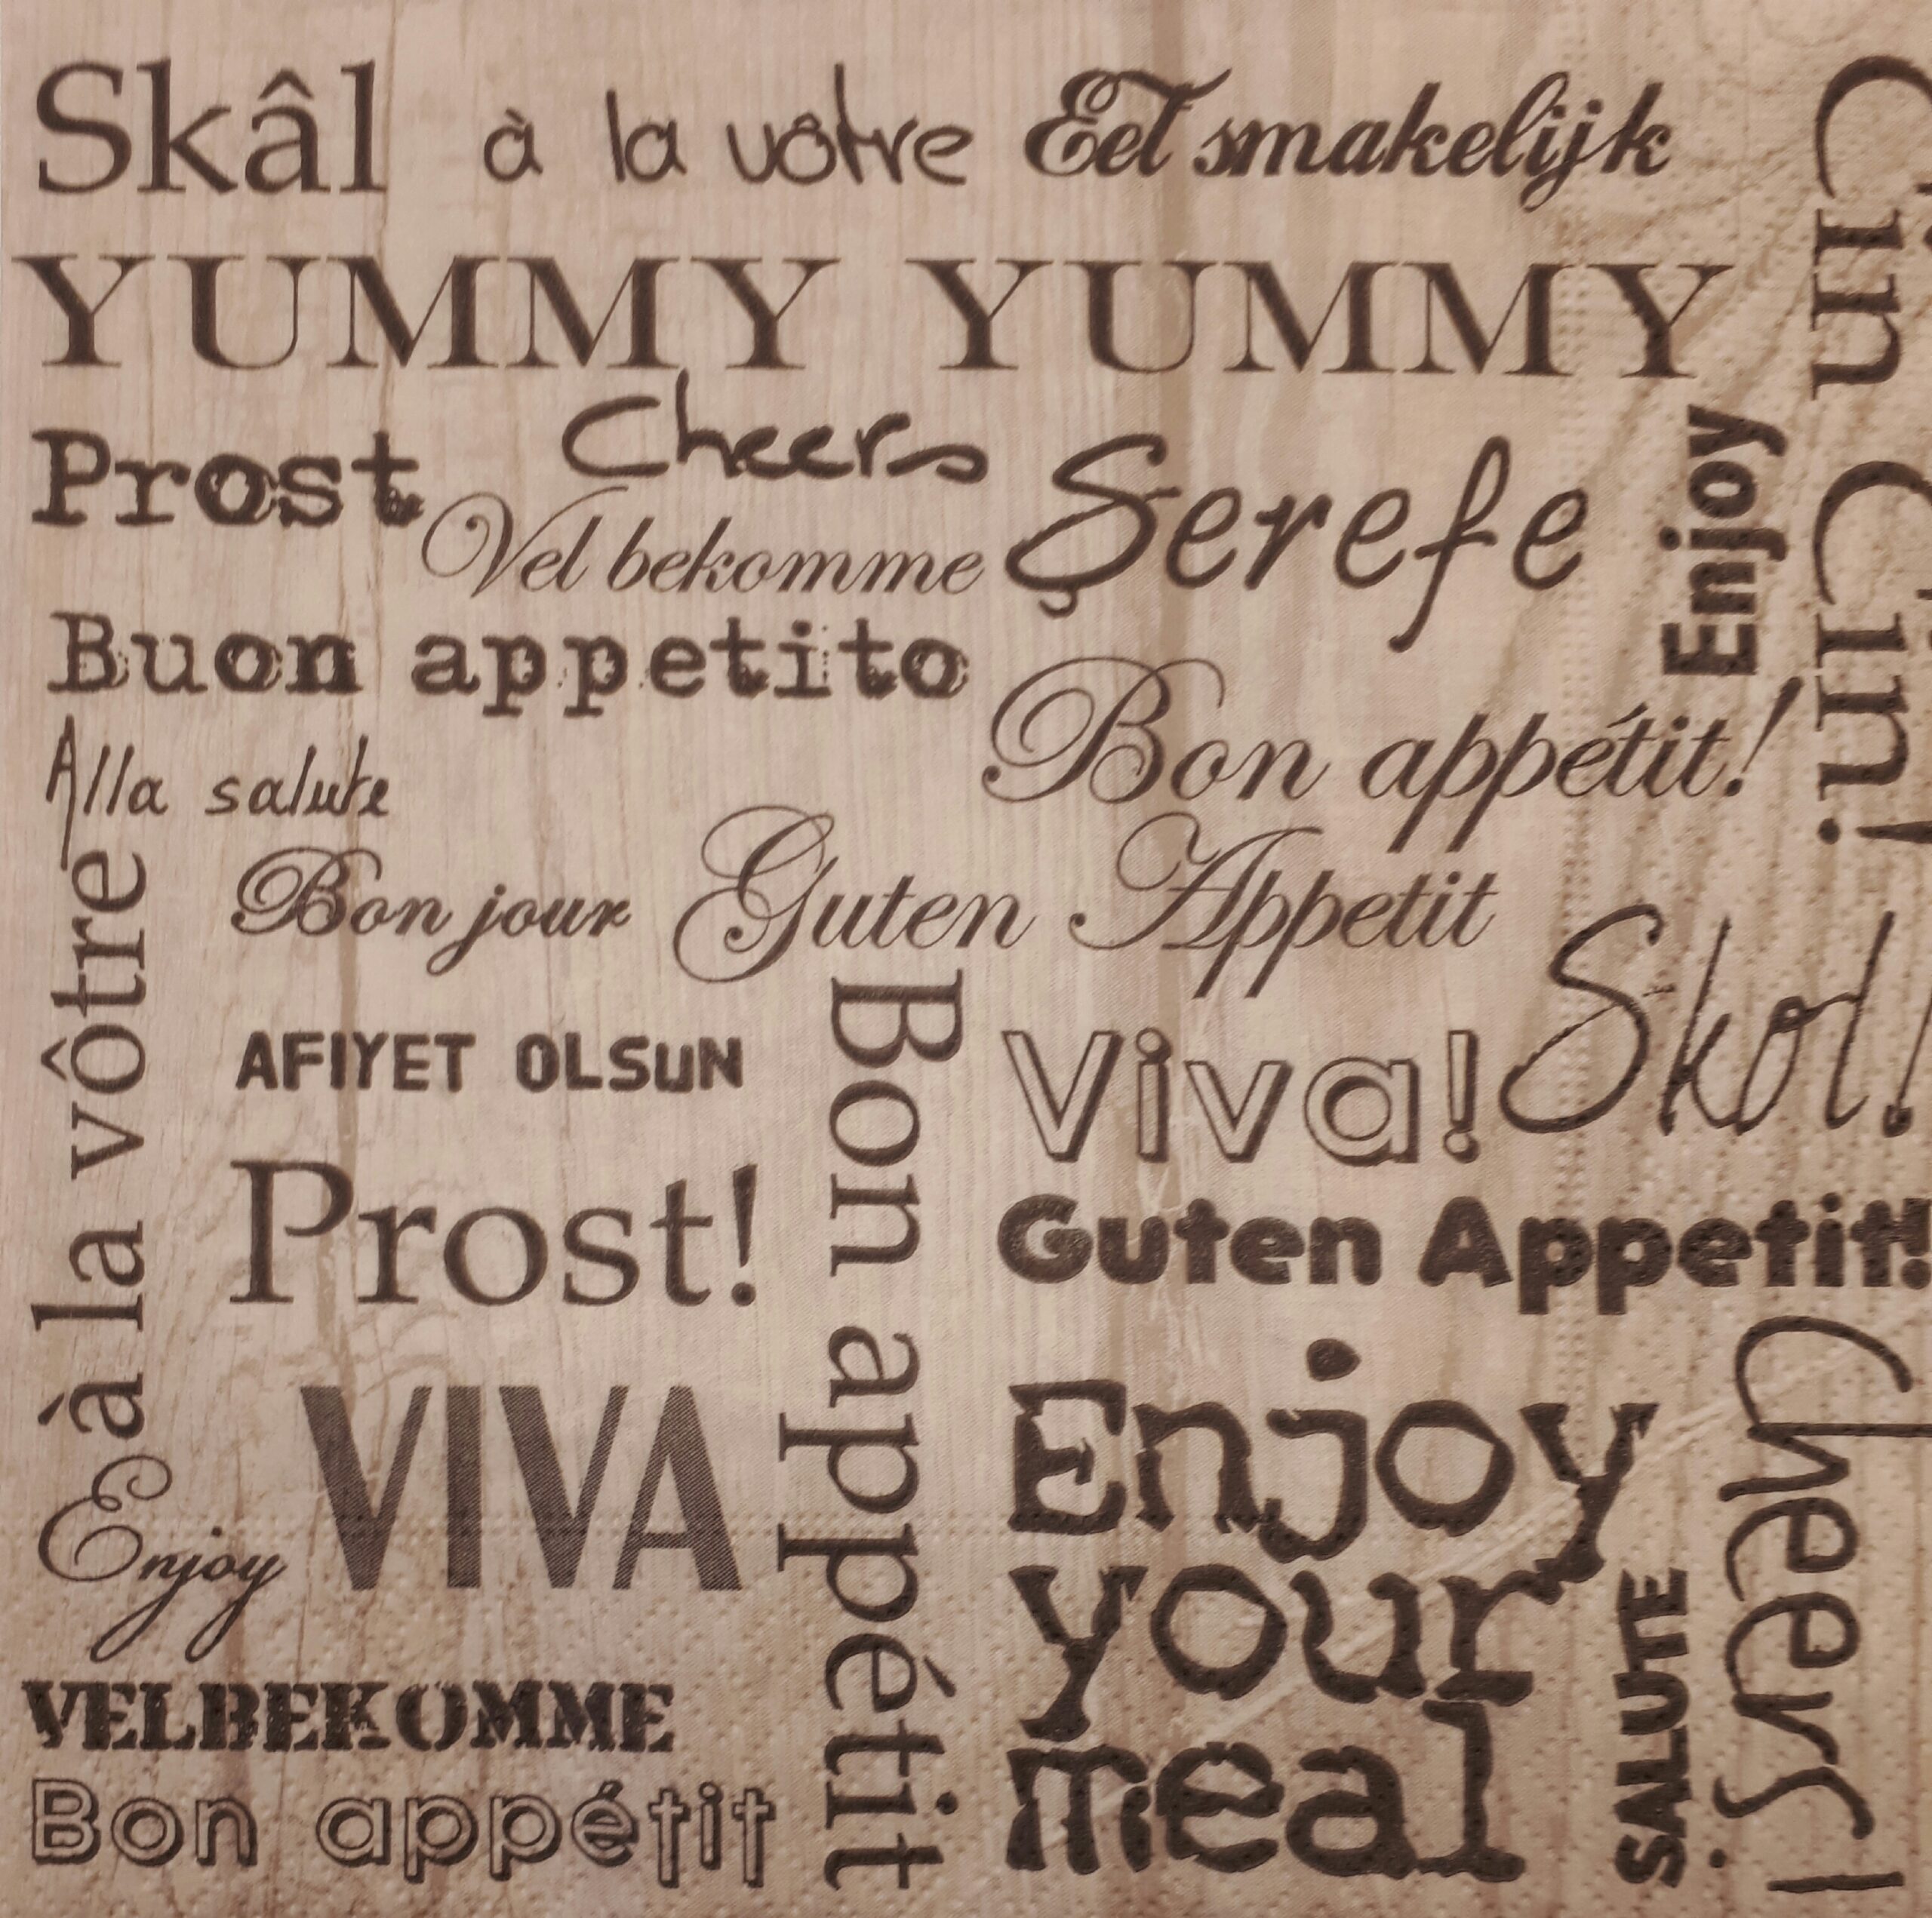 Skâl à la vôtre Eet smakelijk
Cin Cin!
YUMMY YUMMY
Cheers
Prost
Vel bekomme
Şerefe
Enjoy
Buon appetito
Bon appétit!
Alla salute
Bon jour Guten Appetit
à la vôtre
AFIYET OLSUN
Bon appétit
Viva!
Skol!
Prost!
Guten Appetit!
VIVA
Enjoy
your
meal
Cheers!
Enjoy
SALUTE
VELBEKOMME
Bon appétit